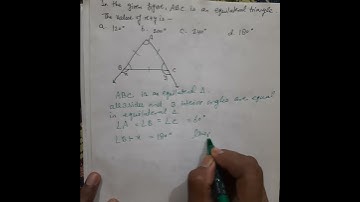 In the given figure, ABC is an equilateral triangle.
The value of x+y is -
a. 120° b. 200° c. 240° d. 180°
A
B C
ABC is an equilateral Δ.
all sides and interior angles are equal
in equilateral Δ
∠A = ∠B = ∠C = 60°
∠B + x = 180°